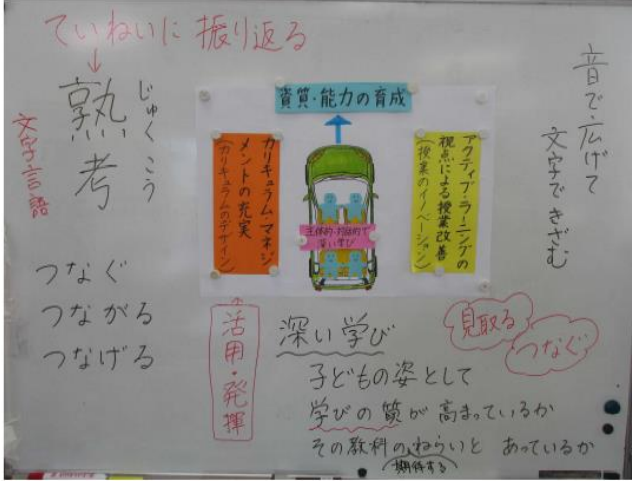 ていねいに 振り返る
↓
熟考
じゅくこう
文字言語
つなぐ
つながる
つなげる
資質・能力の育成
カリキュラム・マネジ
メントの充実
(カリキュラムのデザイン)
主体的・対話的で
深い学び
アクティブ・ラーニングの
視点による授業改善
(授業のイノベーション)
音で広げて
文字できざむ
活用・発揮
深い学び
見取る
つなぐ
子どもの姿として
学びの質が高まっているか
その教科のねらいと あっているか
期待する